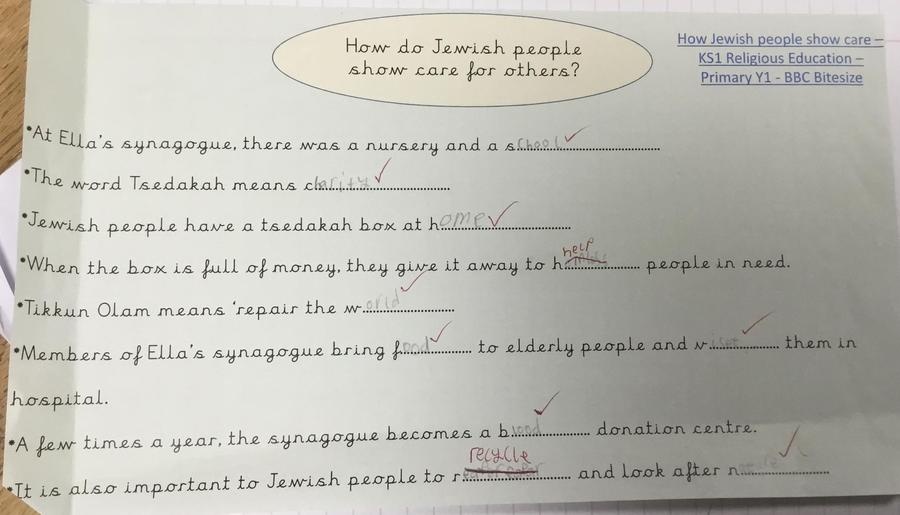 How do Jewish people
show care for others?
How Jewish people show care –
KS1 Religious Education –
Primary Y1 - BBC Bitesize
•At Ella's synagogue, there was a nursery and a school
•The word Tsedakah means charity
•Jewish people have a tsedakah box at home
•When the box is full of money, they give it away to h help people in need.
•Tikkun Olam means 'repair the world
•Members of Ella's synagogue bring food to elderly people and viset them in
hospital.
•A few times a year, the synagogue becomes a blood donation centre.
•It is also important to Jewish people to r recycle and look after nature